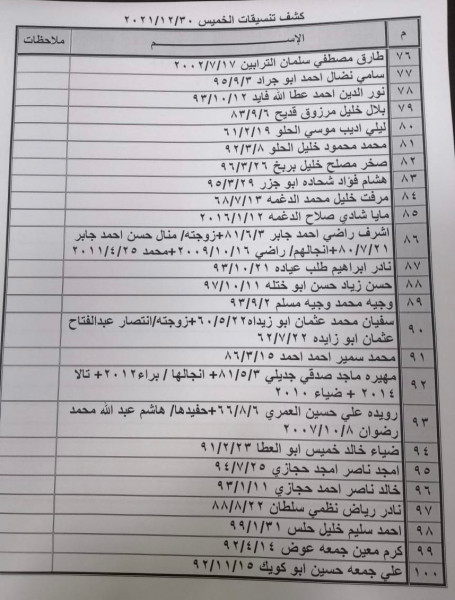 كشف تنسيقات الخميس ٢٠٢١/١٢/٣٠
م الإســـــــم ملاحظات
٧٦ طارق مصطفي سلمان الترابين ٢٠٠٢/٧/١٧
٧٧ سامي نضال احمد ابو جراد ٩٥/٩/٣
٧٨ نور الدين احمد عطا الله فايد ٩٣/١٠/١٢
٧٩ بلال خليل مرزوق قديح ٨٣/٩/٦
٨٠ ليلي اديب موسي الحلو ٦١/٢/١٩
٨١ محمد محمود خليل الحلو ٩٢/٣/٨
٨٢ صخر مصلح خليل بربخ ٩٦/٣/٢٦
٨٣ هشام فؤاد شحاده ابو جزر ٩٥/٣/٢٩
٨٤ مرفت خليل محمد الدغمه ٦٨/٧/١٣
٨٥ مايا شادي صلاح الدغمه ٢٠١٦/١/١٢
٨٦ اشرف راضي احمد جابر ٨١/٦/٣+زوجته/ منال حسن احمد جابر
٨٠/٧/٢١+انجالهم/ راضي ٢٠٠٩/١٠/١٦+محمد ٢٠١١/٤/٢٥
٨٧ نادر ابراهيم طلب عياده ٩٣/١٠/٢١
٨٨ حسن زياد حسن ابو ختله ٩٧/١٠/١١
٨٩ وجيه محمد وجيه مسلم ٩٣/٩/٢
٩٠ سفيان محمد عثمان ابو زيداه ٦٠/٥/٢٢+زوجته/انتصار عبدالفتاح
عثمان ابو زايده ٦٢/٧/٢٢
٩١ محمد سمير احمد احمد ٨٦/٣/١٥
٩٢ مهيره ماجد صدقي جديلي ٨١/٥/٣+ انجالها / براء٢٠١٢+ تالا
٢٠١٤ + ضياء ٢٠١٠
٩٣ رويده علي حسين العمري ٦٦/٨/٦+حفيدها/ هاشم عبد الله محمد
رضوان ٢٠٠٧/١٠/٨
٩٤ ضياء خالد خميس ابو العطا ٩١/٢/٢٣
٩٥ امجد ناصر امجد حجازي ٩٤/٧/٢٥
٩٦ خالد ناصر احمد حجازي ٩٣/١/١١
٩٧ نادر رياض نظمي سلطان ٨٨/٨/٢٢
٩٨ احمد سليم خليل حلس ٩٩/١/٣١
٩٩ كرم معين جمعه عوض ٩٢/٤/١٤
١٠٠ علي جمعه حسين ابو كويك ٩٢/١١/١٥